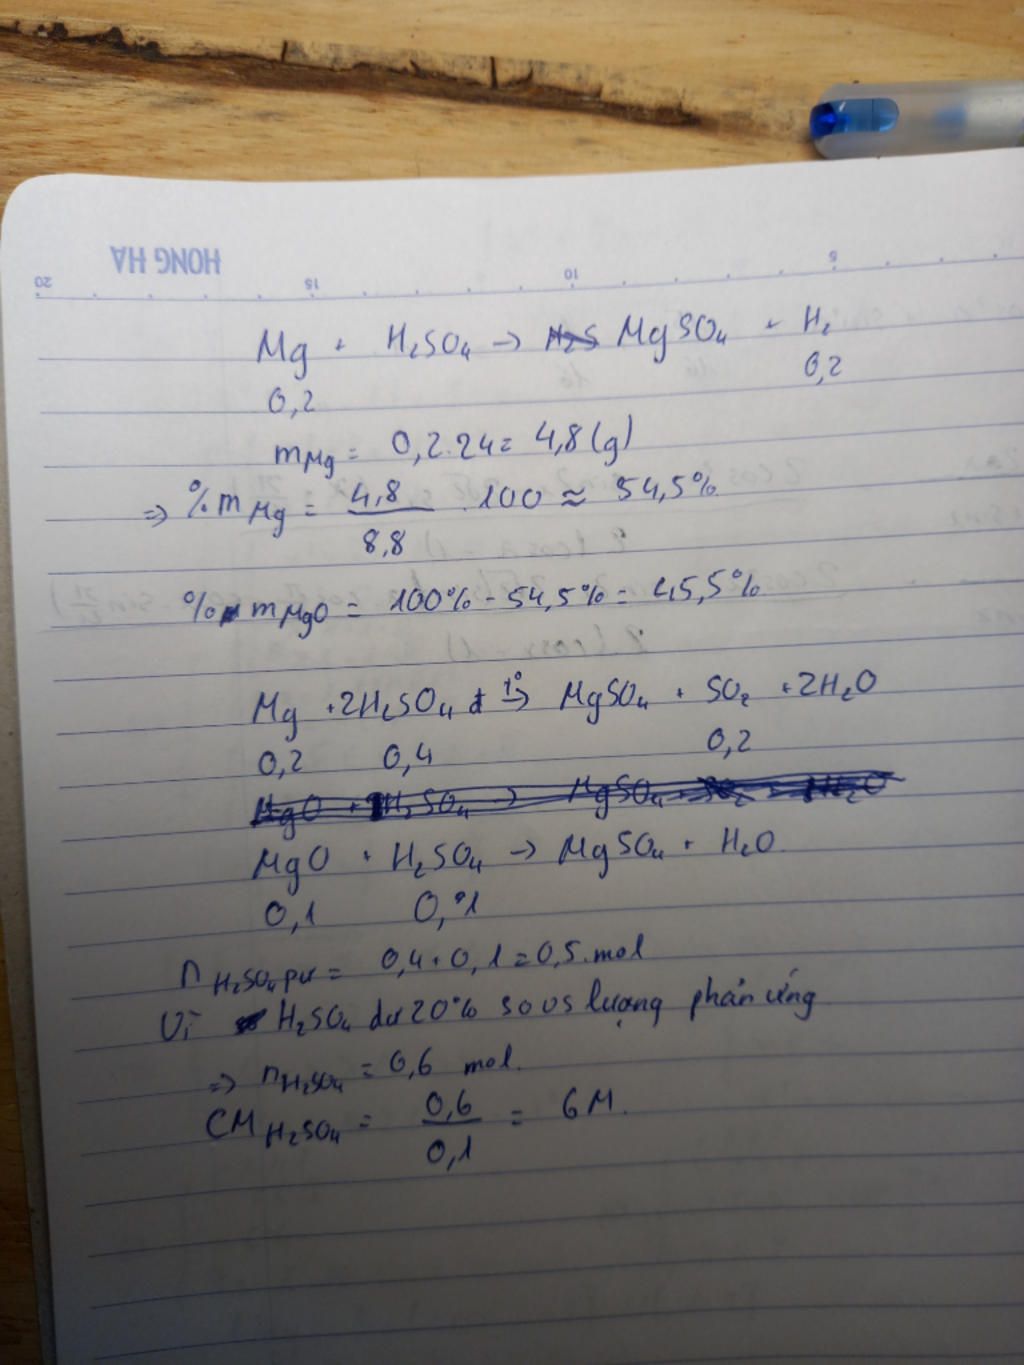 HONG HA
20 15 10 5
Mg + H₂SO₄ → H₂S MgSO₄ + H₂
0,2 0,2
mMg = 0,2.24 = 4,8 (g)
=> %mMg = 4,8/8,8 . 100 ≈ 54,5%
%mMgO = 100% - 54,5% = 45,5%
Mg + 2H₂SO₄ đ t° → MgSO₄ + SO₂ + 2H₂O
0,2 0,4 0,2
MgO + H₂SO₄ → MgSO₄ + SO₂ + H₂O
MgO + H₂SO₄ → MgSO₄ + H₂O
0,1 0,1
nH₂SO₄pư = 0,4 + 0,1 = 0,5 mol
Vì H₂SO₄ dư 20% so vs lượng phản ứng
=> nH₂SO₄ = 0,6 mol.
CM H₂SO₄ = 0,6/0,1 = 6M.